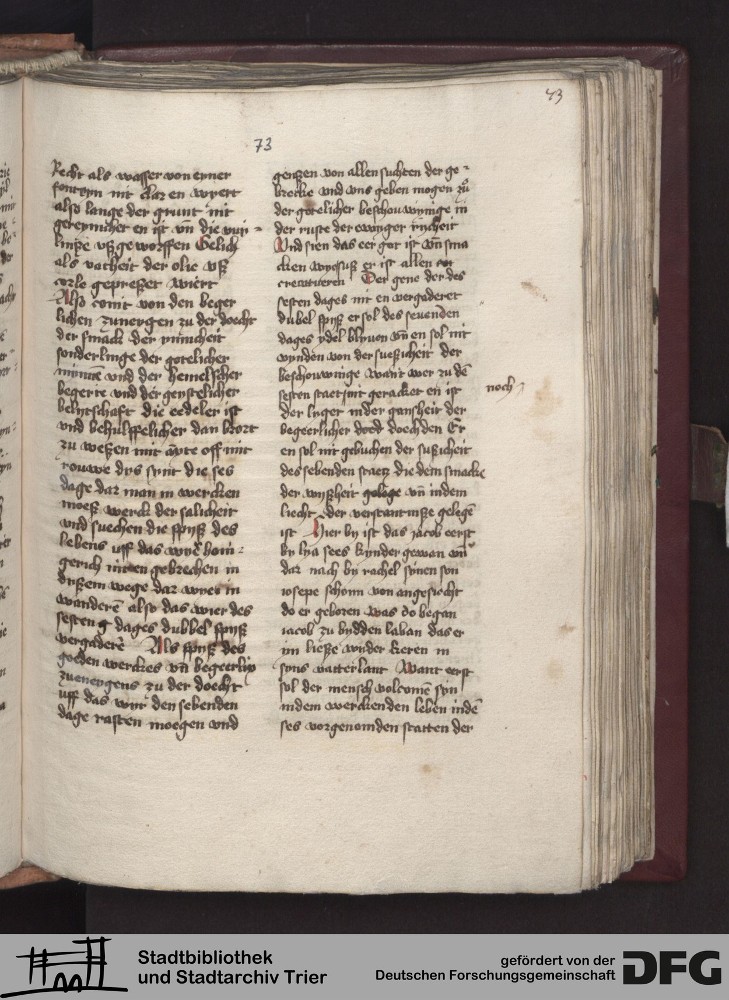 73
73
Recht als wasser von eyner
fonteyn nit clar en wyrt
also lange der grunt nit
gereynichet en ist vn̄ die vuy-
lniße vßgeworffen Gelich
als vatheit der olie vß
corle gepreßet wirt
Also comt von den beger
lichen zuneygen zu der doecht
der smack der mynicheit
sonderlinge der gotelicher
mynnē vnd der hemelscher
begerte vnd der geystelicher
die eedeler ist
vnd behulffelicher dan brort
zu weßen mit off mit
rouwe dys synt die ses
dage dar man in wercken
moeß werck der salicheit
vnd suechen die spyß des
lebens uff das wyr hom-
gerich nit en gebrechen in
dyßem wege dar wyr in
wanderē also das wier des
sesten dages dubbel spyß
vergaderē Als spyß des
goeden werckes vn̄ begeerlip
zuneygens zu der doecht
uff das wyr den sebenden
dage rasten moegen vnd
genßen von allen suchten der ge-
brocke vnd vns geben mogen zů
der gotelicher beschouwynge in
der ruste der ewinger rycheit
Vnd sien das eer got ist vn̄ sma
cken wye suß er ist allen
creatueren Der gene der des
sesten dages nit en vergaderet
dubel spyß er sol des seuenden
dages ydel blyuen vn̄ en sol nit
vynden von der sueßicheit der
beschouwinge want wer zu dē
sesten staet nit geracket en ist
noch
Der lyget in der gansheit der
begeerlicher dood doech den Er
en sol nit gebuchen der sußicheit
des sebenden staetz die dem smacke
der wyßheit gelege vn̄ in dem
liecht der verstantniße gelegē
ist Hier by ist das jacob eerst
by lya sees kynder gewan vn̄
dar nach by rachel synen son
iosepe schonn von angesiecht
do er geboren was do began
iacob zu bydden laban das er
yn ließe wyder keren in
syns vatterlant Want eerst
sol der mensch volcomē syn
in dem werckenden leben in dē
ses vorgenomden statten der
Stadtbibliothek
und Stadtarchiv Trier
gefördert von der
Deutschen Forschungsgemeinschaft
DFG